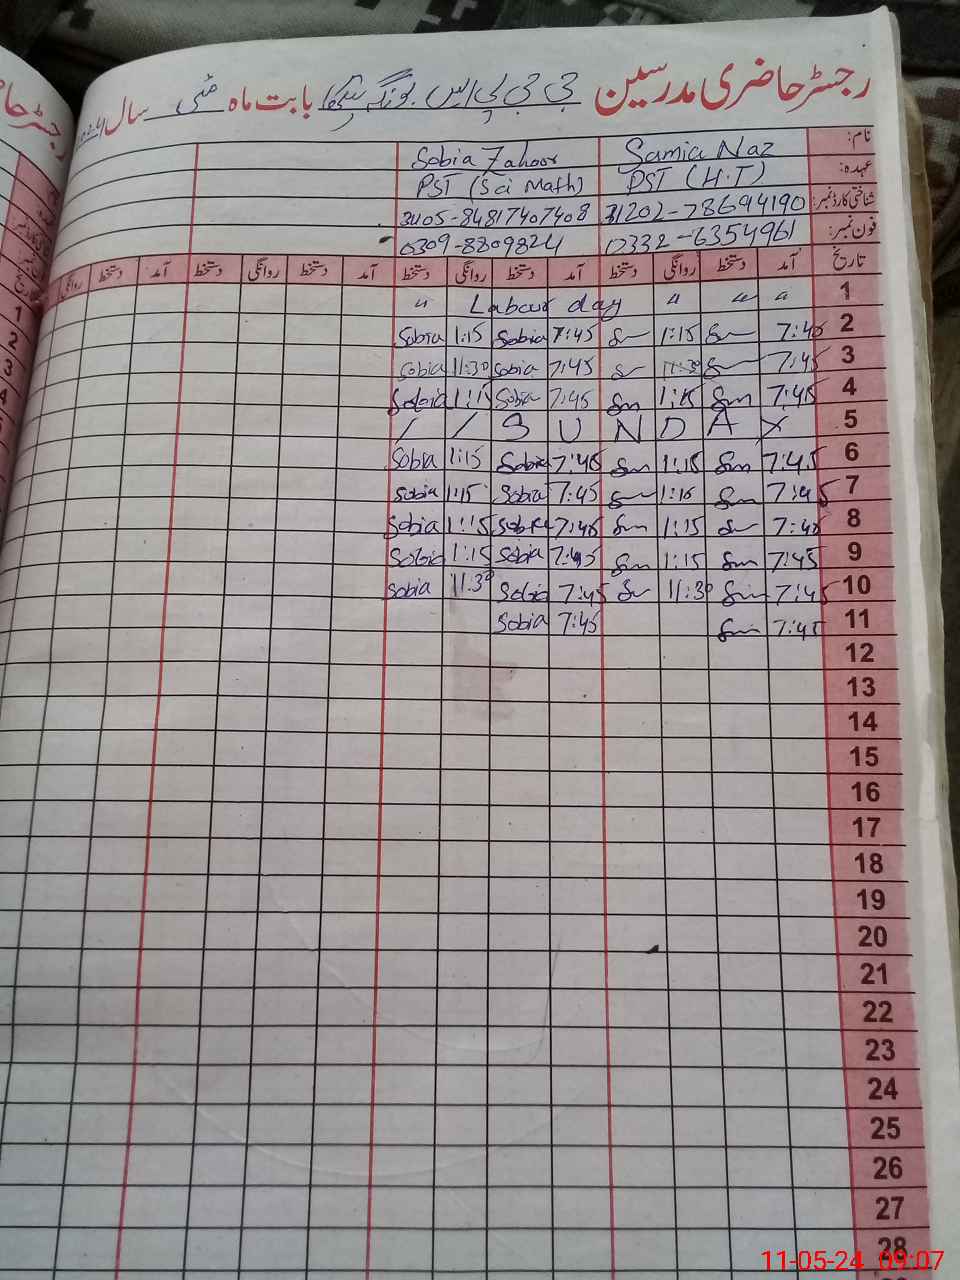 رجسٹر حاضری مدرسین جی جی پی ایس بونگہ بابت ماہ مئی سال
نام: Samia Naz Sobia Zahoor
عہدہ: PST (H.T) PST (Sci Math)
شناختی کارڈ نمبر: 31202-78694190 3405-84817407408
فون نمبر: 0332-6354961 0309-8809824
تاریخ آمد دستخط روانگی دستخط آمد دستخط روانگی دستخط آمد دستخط روانگی دستخط آمد دستخط روانگی
1 " " " Labour day "
2 7:45 Sm 1:15 Sm 7:45 Sobia 1:15 Sobia
3 7:45 Sm 11:30 Sm 7:45 Sobia 11:30 Sobia
4 7:45 Sm 1:15 Sm 7:45 Sobia 1:15 Sobia
5 / / S U N D A Y
6 7:45 Sm 1:15 Sm 7:45 Sobia 1:15 Sobia
7 7:45 Sm 1:15 Sm 7:45 Sobia 1:15 Sobia
8 7:45 Sm 1:15 Sm 7:45 Sobia 1:15 Sobia
9 7:45 Sm 1:15 Sm 7:45 Sobia 1:15 Sobia
10 7:45 Sm 11:30 Sm 7:45 Sobia 11:30 Sobia
11 7:45 Sm 7:45 Sobia
12
13
14
15
16
17
18
19
20
21
22
23
24
25
26
27
28
11-05-24 09:07